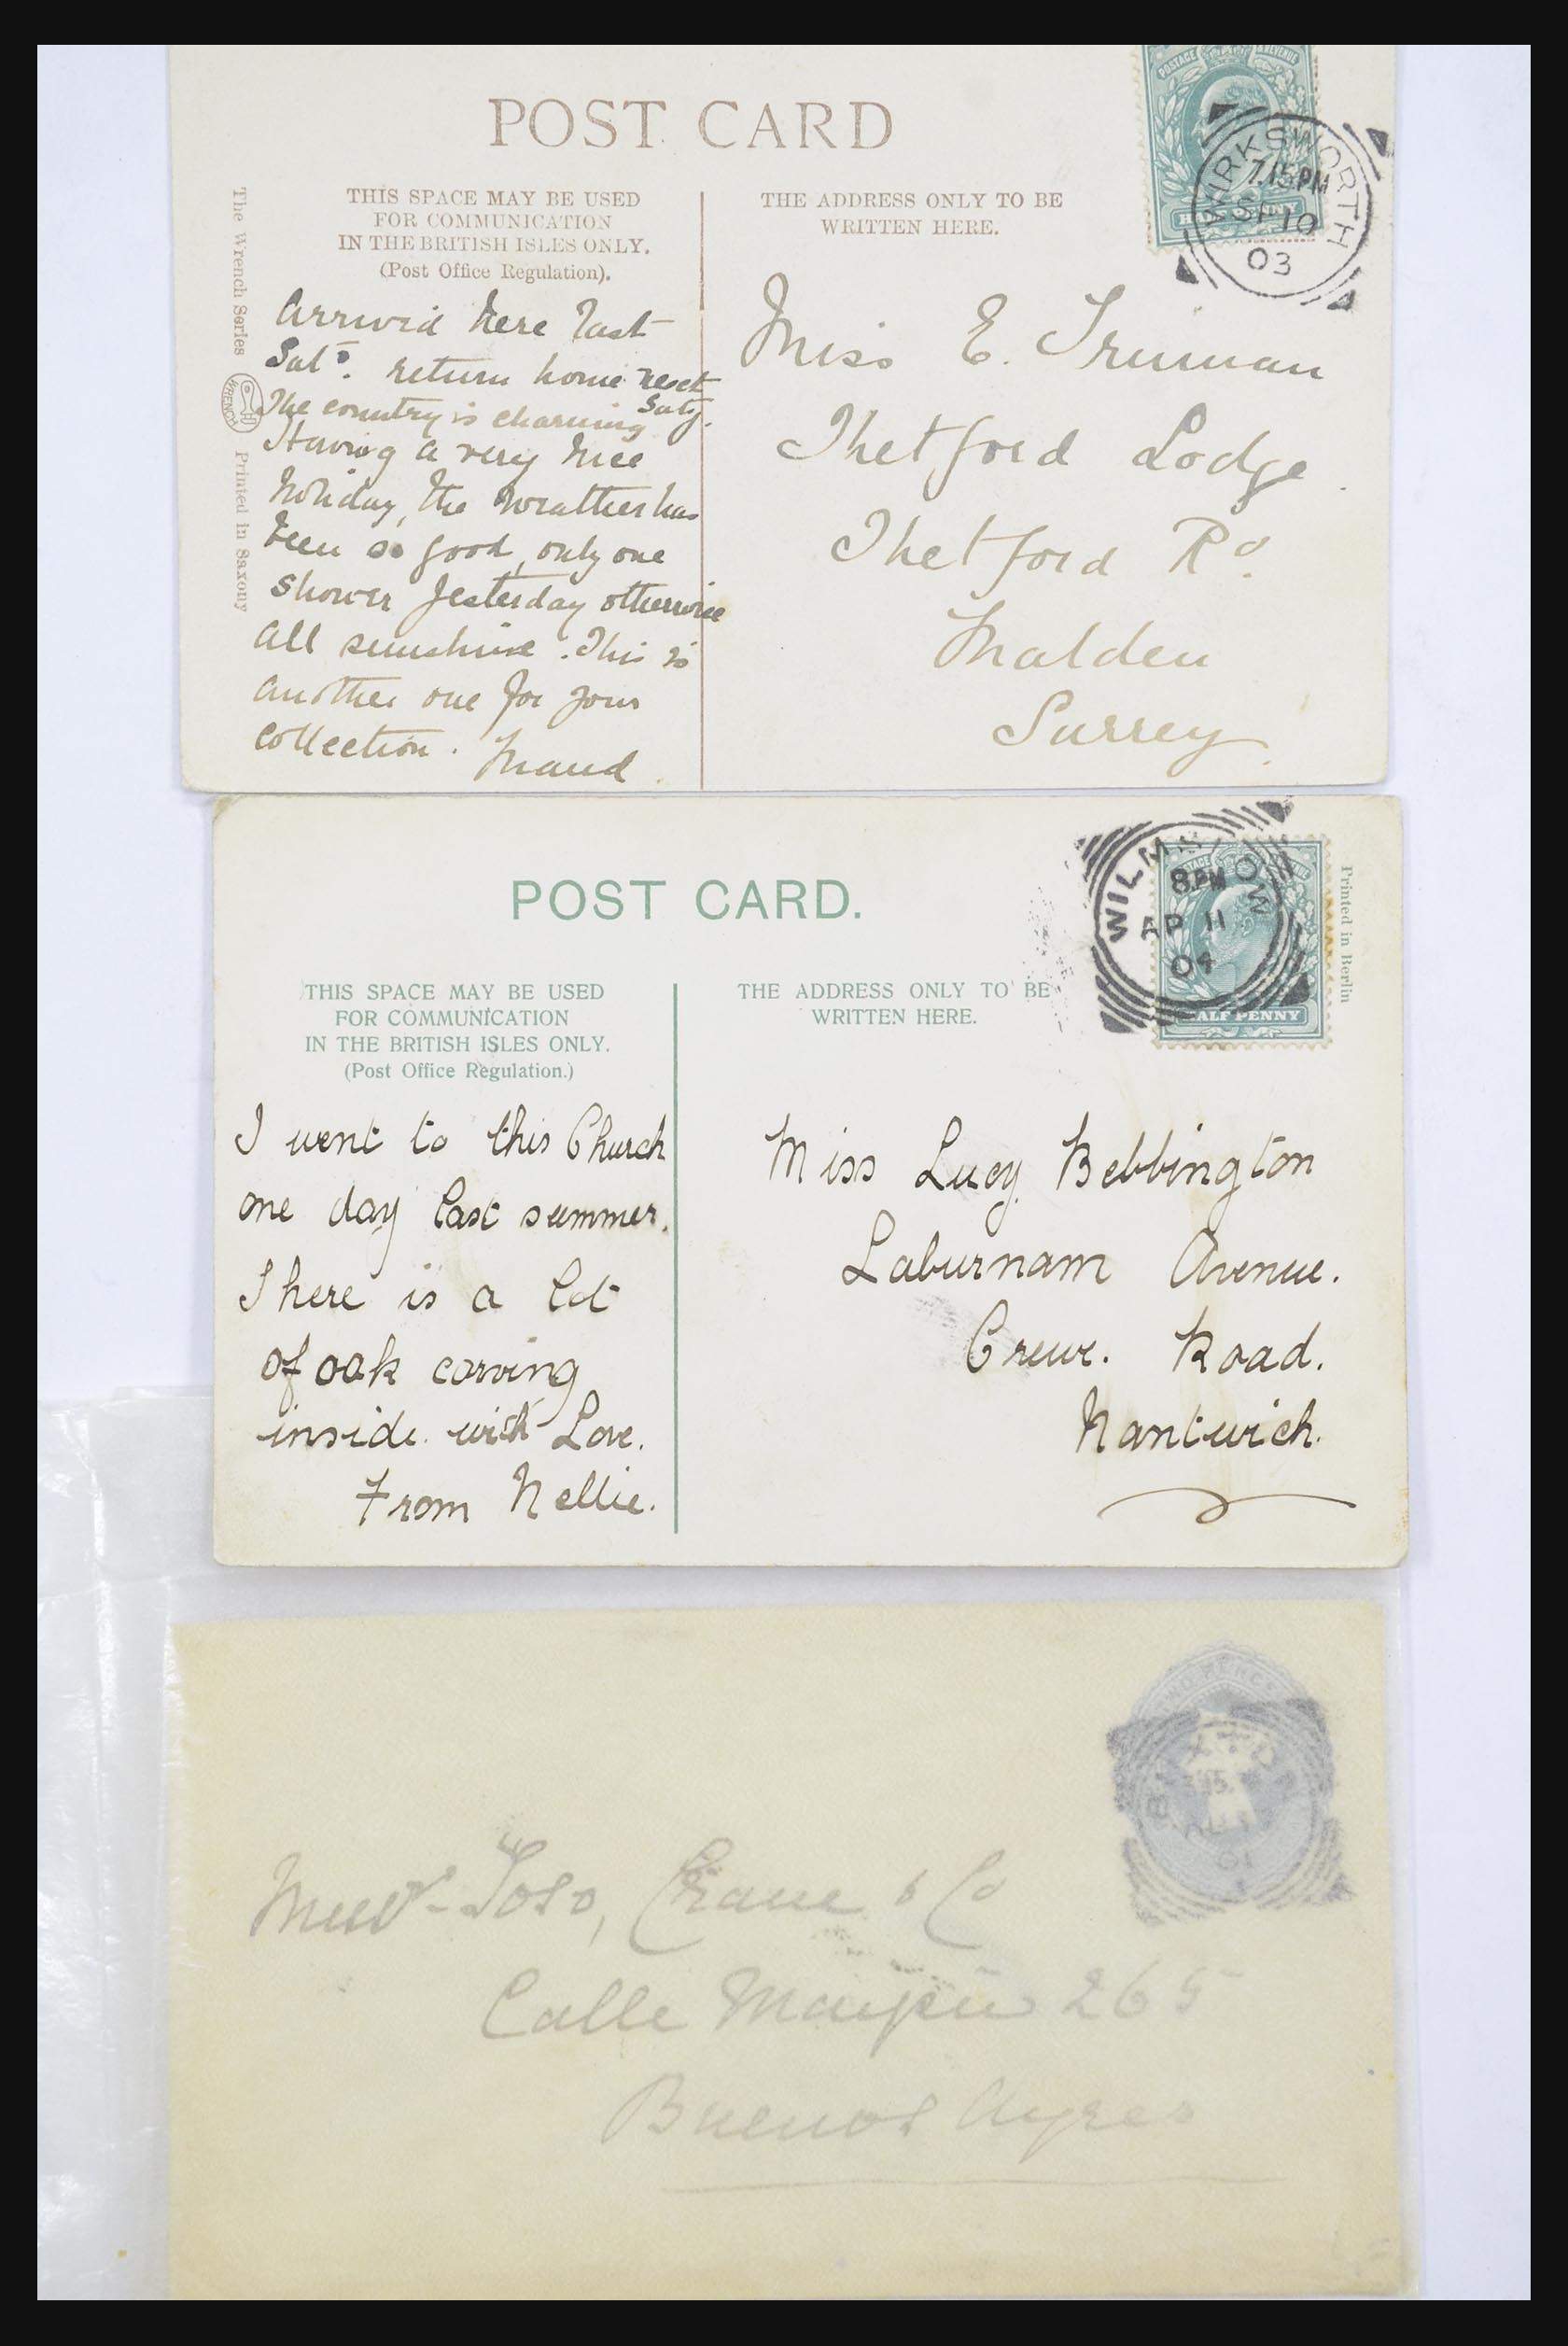 POST CARD
THIS SPACE MAY BE USED
FOR COMMUNICATION
IN THE BRITISH ISLES ONLY.
(Post Office Regulation).
THE ADDRESS ONLY TO BE
WRITTEN HERE.
POSTAGE
REVENUE
HALF PENNY
WIRKSWORTH
7.15PM
SP 10
03
The Wrench Series
WRENCH
Printed in Saxony
Arrived here last
Sat. return home next
Saty.
The country is charming
Having a very nice
holiday, the weather has
been so good, only one
shower yesterday otherwise
all sunshine. This is
another one for your
collection. Maud
Miss E. Truman
Thetford Lodge
Thetford Rd.
Malden
Surrey.
POST CARD.
THIS SPACE MAY BE USED
FOR COMMUNICATION
IN THE BRITISH ISLES ONLY.
(Post Office Regulation.)
THE ADDRESS ONLY TO BE
WRITTEN HERE.
WILMSLOW
8.PM
AP 11
04
HALF PENNY
Printed in Berlin
I went to this Church
one day last summer.
There is a lot
of oak carving
inside. with Love.
From Nellie.
Miss Lucy Bebbington
Laburnam Avenue.
Crewe. Road.
Nantwich.
BRIXTON
01
Messrs Toso, Crane & Co
Calle Maipu 265
Buenos Ayres